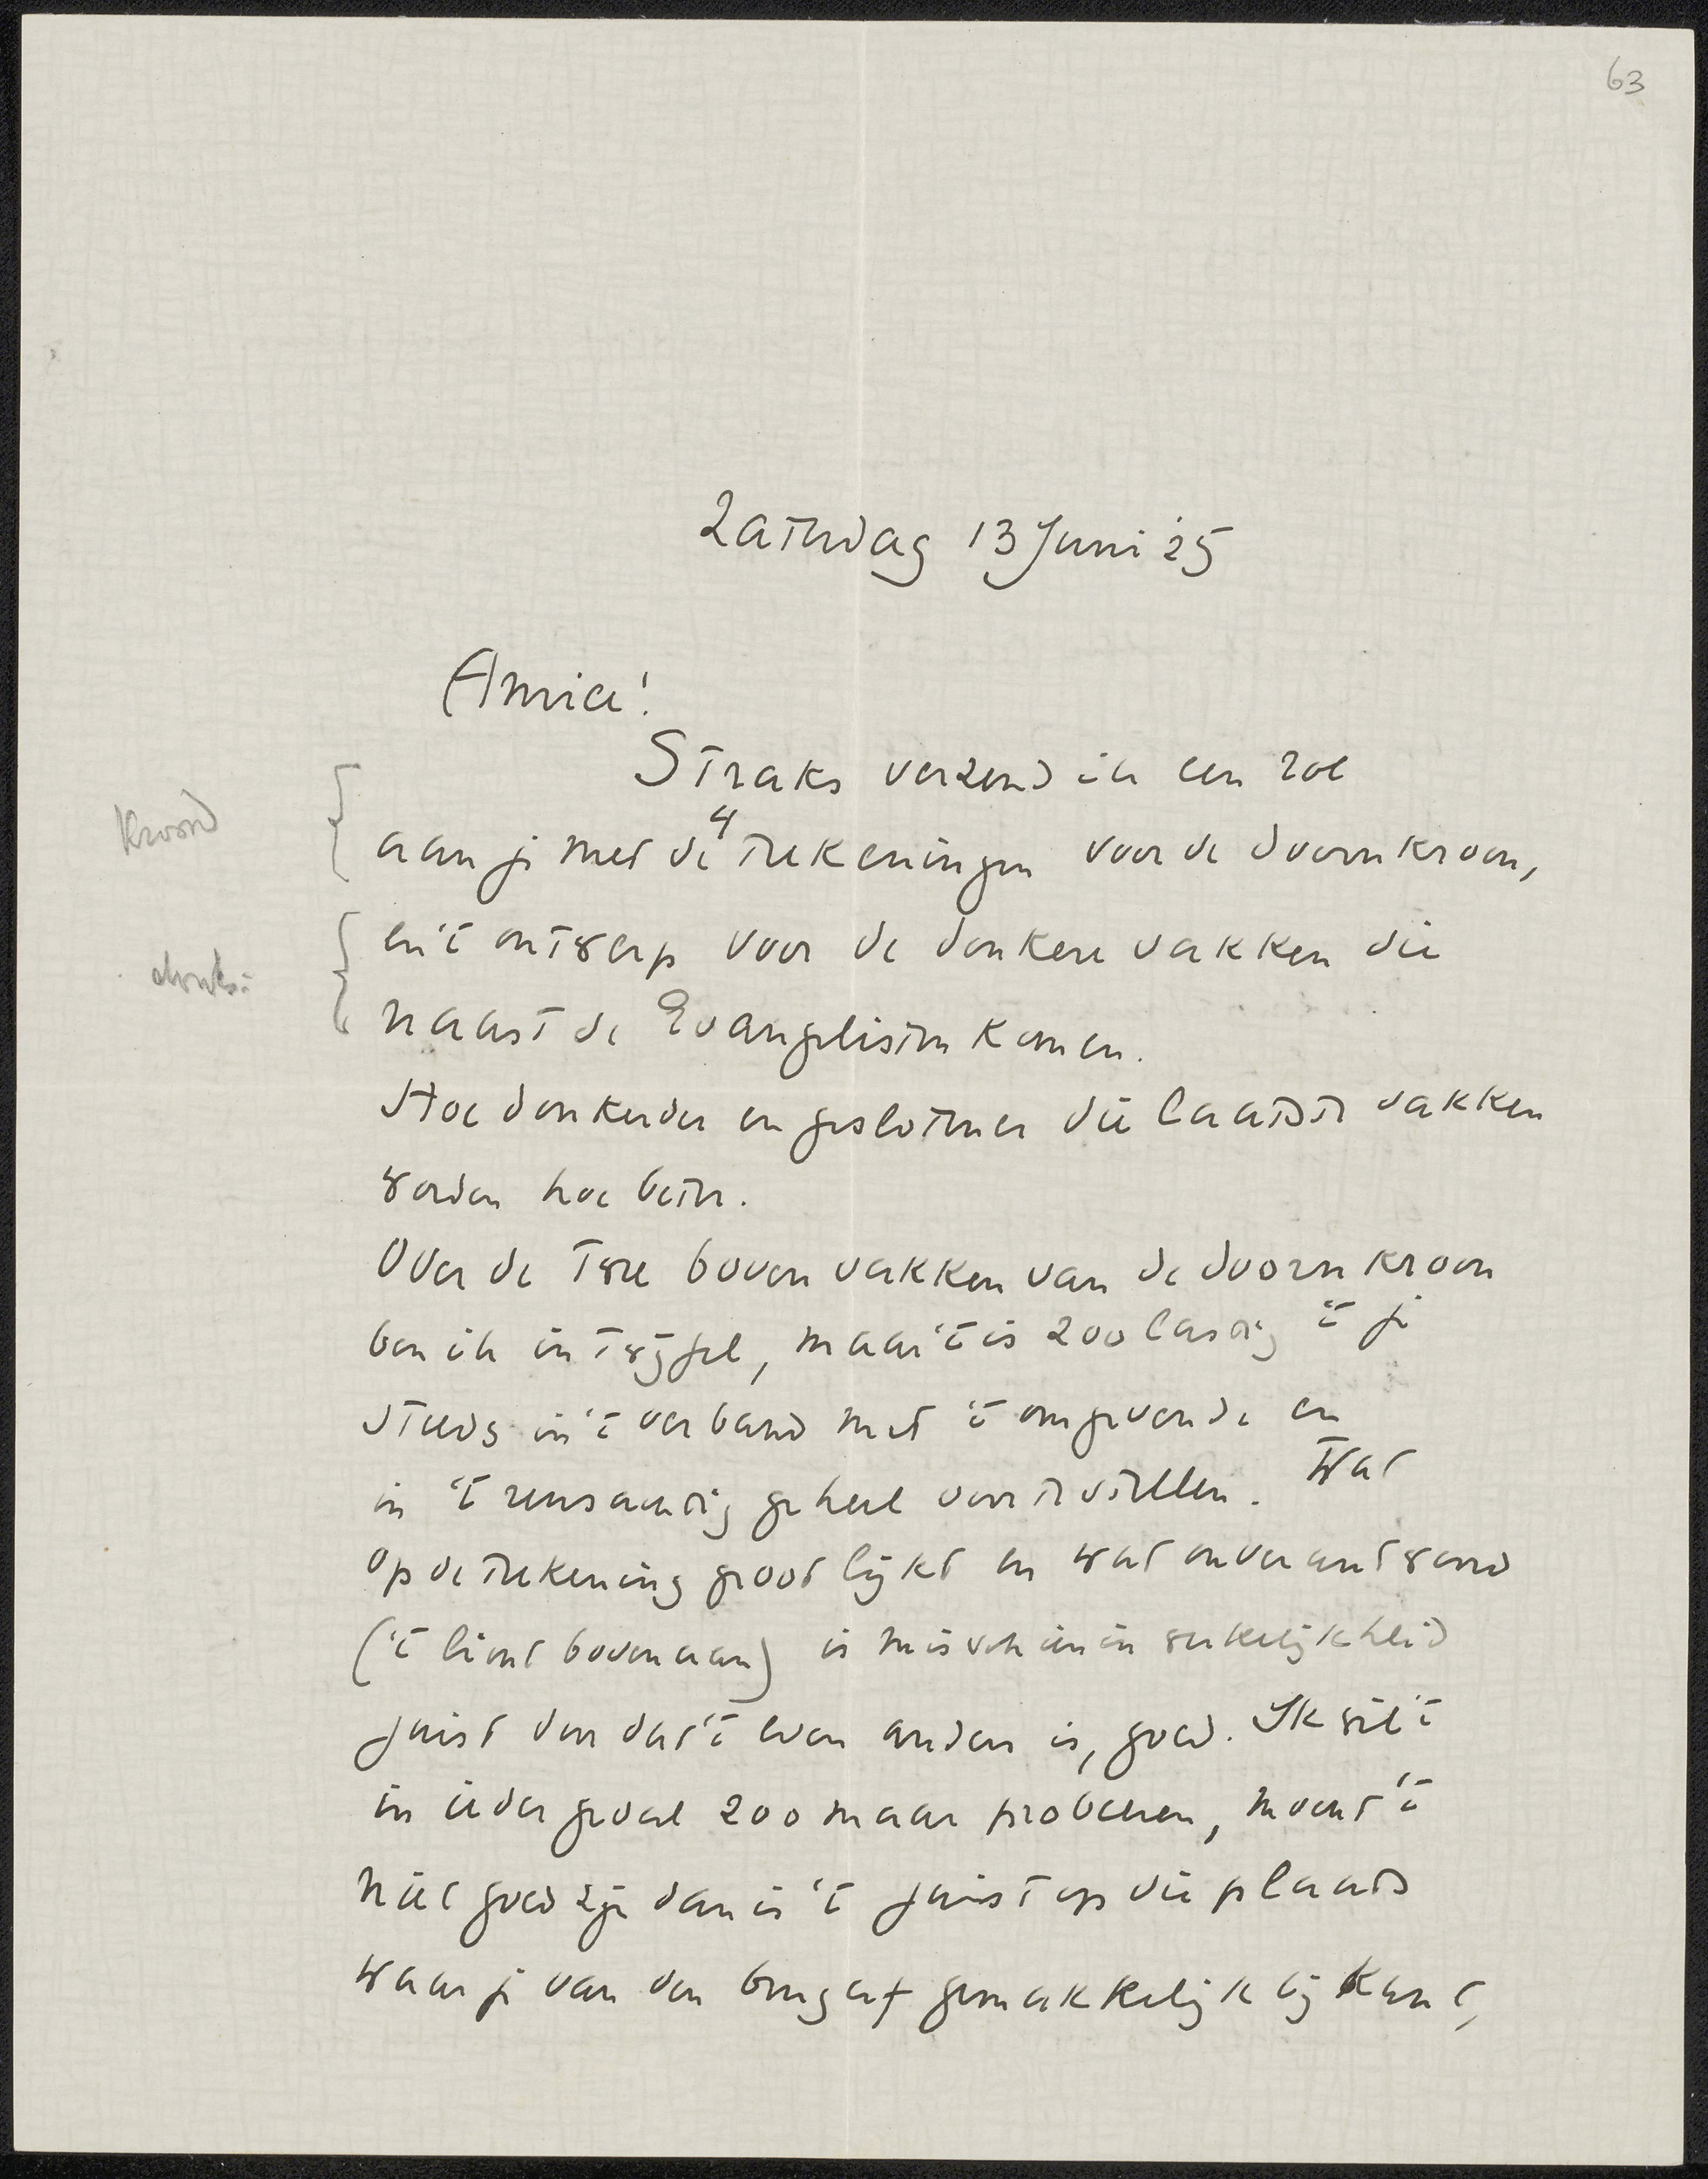 63
Zaterdag 13 Juni '25
Amice!
Straks verzend ik een rol
aan je met de 4 teekeningen voor de doornkroon,
en 't ontwerp voor de donkere vakken die
naast de Evangelisten komen.
Hoe donkerder en geslotener die laatste vakken
worden hoe beter.
Over de twee boven vakken van de doornkroon
ben ik in twijfel, maar 't is zoo lastig 't je
steeds in 't verband met 't omgevende en
in 't reusachtig geheel voor te stellen. Wat
op de teekening groot lijkt en wat onverantwoord
('t lint bovenaan) is misschien in werkelijkheid
juist door dat 't even anders is, goed. Ik wil 't
in ieder geval zoo maar probeeren, mocht 't
niet goed zijn dan is 't juist op die plaats
waar je van den brug af gemakkelijk bij kunt,